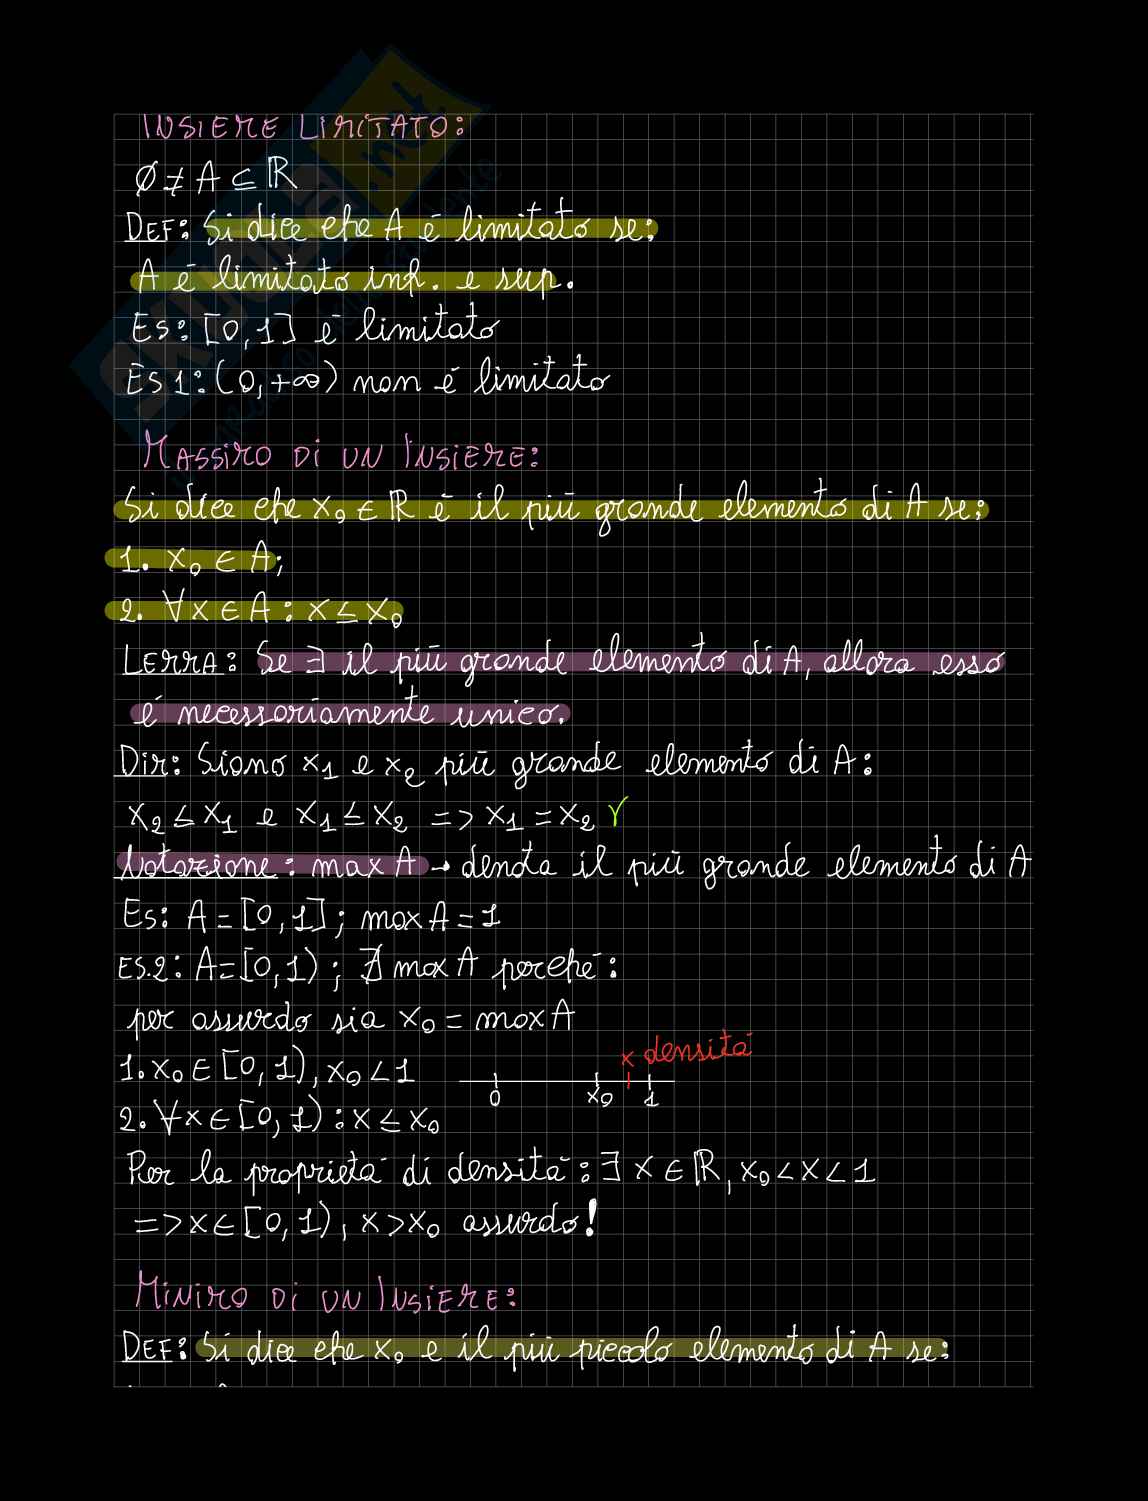 INSIEME LIMITATO:
Ø ≠ A ⊆ ℝ
DEF: Si dice che A è limitato se:
A è limitato inf. e sup.
Es: [0,1] è limitato
Es 1: (0,+∞) non è limitato
MASSIMO DI UN INSIEME:
Si dice che x₀ ∈ ℝ è il più grande elemento di A se:
1. x₀ ∈ A;
2. ∀x ∈ A : x ≤ x₀
LEMMA: Se ∃ il più grande elemento di A, allora esso
è necessariamente unico.
DIM: Siano x₁ e x₂ più grande elemento di A:
x₂ ≤ x₁ e x₁ ≤ x₂ => x₁ = x₂
Notazione: max A → denota il più grande elemento di A
Es: A = [0,1]; max A = 1
ES.2: A=[0,1); ∄ max A perché:
per assurdo sia x₀ = max A
x densità
1. x₀ ∈ [0,1), x₀ < 1
0 x₀ 1
2. ∀x ∈ [0,1) : x ≤ x₀
Per la proprietà di densità: ∃ x ∈ ℝ, x₀ < x < 1
=> x ∈ [0,1), x > x₀ assurdo!
MINIMO DI UN INSIEME:
DEF: Si dice che x₀ e il più piccolo elemento di A se: